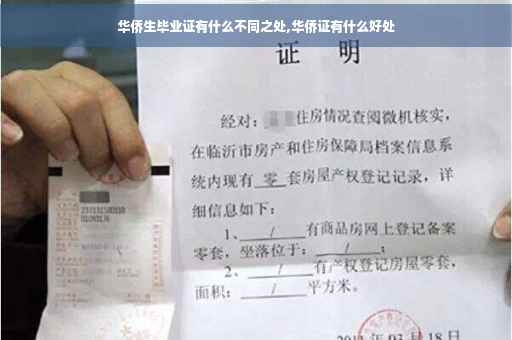 华侨生毕业证有什么不同之处,华侨证有什么好处
证 明
经对: 住房情况查阅微机核实,
在临沂市房产和住房保障局档案信息系
统内现有 零 套房屋产权登记记录, 详
细信息如下:
1、 / 有商品房网上登记备案
零套, 坐落位于: / ;
2、 / 有产权登记房屋零套,
面积: / 平方米。